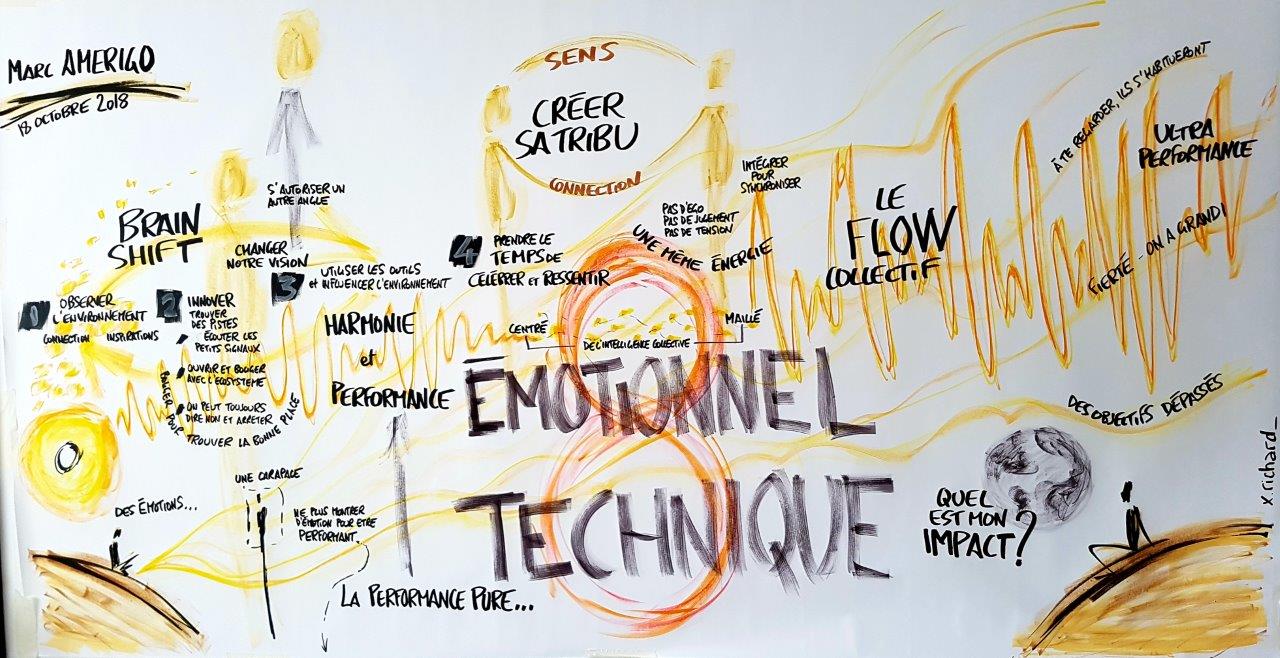 MARC AMERIGO
18 OCTOBRE 2018
BRAIN
SHIFT
S'AUTORISER UN
AUTRE ANGLE
CHANGER
NOTRE VISION
1 OBSERVER
L'ENVIRONNEMENT
CONNECTION INSPIRATIONS
2 INNOVER
TROUVER
DES PISTES
ÉCOUTER LES
PETITS SIGNAUX
OUVRIR ET BOUGER
AVEC L'ÉCOSYSTÈME
ON PEUT TOUJOURS
DIRE NON ET ARRÊTER
BOUGER POUR TROUVER LA BONNE PLACE
3 UTILISER LES OUTILS
et INFLUENCER L'ENVIRONNEMENT
HARMONIE
et
PERFORMANCE
SENS
CRÉER
SA TRIBU
CONNECTION
4 PRENDRE LE
TEMPS DE
CÉLÉBRER et RESSENTIR
PAS D'ÉGO
PAS DE JUGEMENT
PAS DE TENSION
UNE MÊME ÉNERGIE
INTÉGRER
POUR
SYNCHRONISER
CENTRÉ MAILLÉ
DE L'INTELLIGENCE COLLECTIVE
ÉMOTIONNEL
TECHNIQUE
LE
FLOW
COLLECTIF
À TE REGARDER, ILS S'HABITUERONT
ULTRA
PERFORMANCE
FIERTÉ - ON A GRANDI
DES OBJECTIFS DÉPASSÉS
DES ÉMOTIONS...
UNE CARAPACE
NE PLUS MONTRER
D'ÉMOTION POUR ETRE
PERFORMANT.
LA PERFORMANCE PURE...
QUEL
EST MON
IMPACT ?
X.richard_